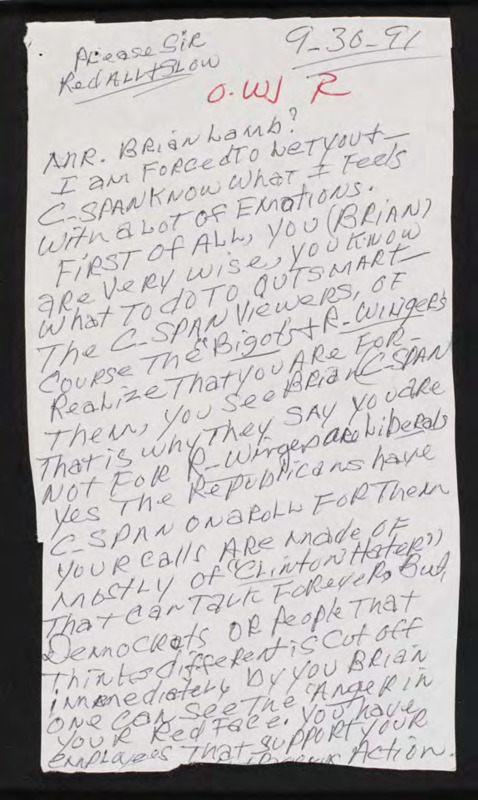 Please Sir
Red ALL + SLOW
9-30-91
O.W/ R
MR. BRIAN Lamb?
I am FORCed TO LeT you +
C-SPAN KNOW WHAT I Feels
WITH a LOT OF EMOTIONS.
FIRST OF ALL, YOU (BRIAN)
are VERY WISE, YOU KNOW
WHAT TO do TO OUTSMART
THE C-SPAN VIEWERS, OF
COURSE THE "Bigots + R-WINgers
ReaLIZE THAT you ARE FOR
THem, you See BRIAN (C-SPAN
THAT IS WHY THEY SAY YOU are
NOT FOR R-Wingers are LibeRals
yes THE RePublicans have
C-SPAN ON a ROLL FOR THem
YOUR CALLS ARE Made OF
MOSTLY OF "CLINTON HateR")
THAT Can TALK FOREVER, BUT,
DemOCRats OR People THAT
THINKS different is CUT OFF
immediately by you BRIAN
ONE can See THE ANgeR in
YOUR Red Face. You have
EMPLOYees THAT SUPPORT YOUR
Action.